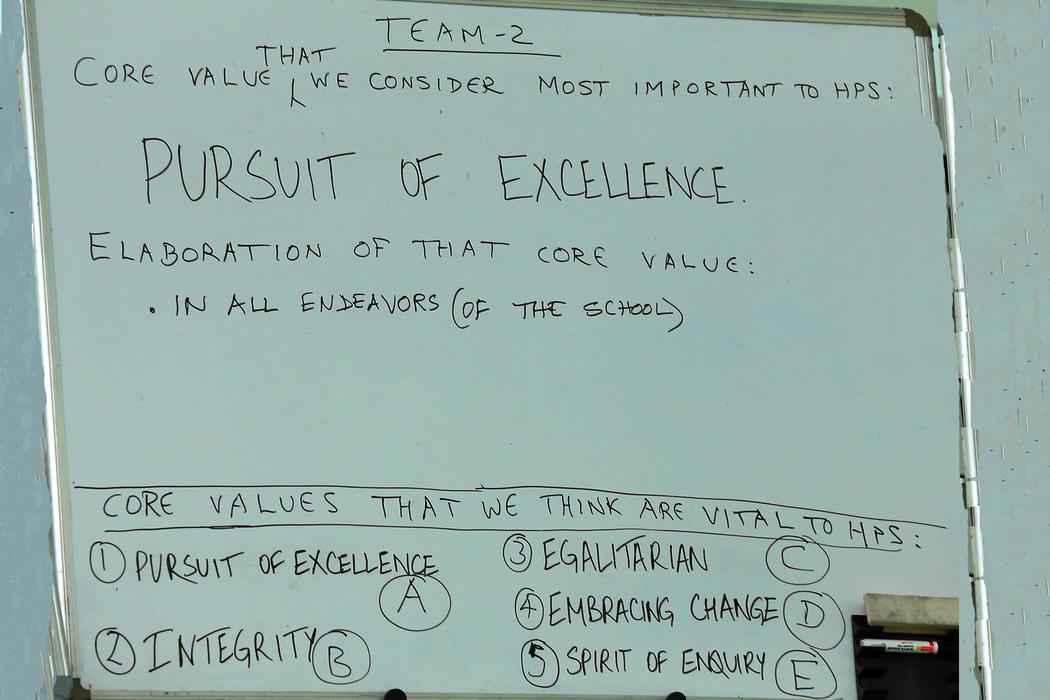 TEAM-2
CORE VALUE THAT WE CONSIDER MOST IMPORTANT TO HPS:
PURSUIT OF EXCELLENCE.
ELABORATION OF THAT CORE VALUE:
• IN ALL ENDEAVORS (OF THE SCHOOL)
CORE VALUES THAT WE THINK ARE VITAL TO HPS:
① PURSUIT OF EXCELLENCE Ⓐ
② INTEGRITY Ⓑ
③ EGALITARIAN Ⓒ
④ EMBRACING CHANGE Ⓓ
⑤ SPIRIT OF ENQUIRY Ⓔ